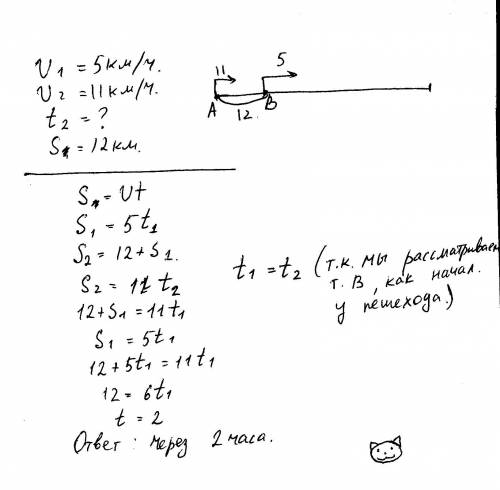 υ1 = 5км/ч.
υ2 = 11км/ч.
t2 = ?
S = 12км.
11
5
A
B
12.
S = υt
S1 = 5t1
S2 = 12+S1.
S2 = 11 t2
12+S1 = 11t1
S1 = 5t1
12+5t1 = 11t1
12 = 6t1
t = 2
Ответ: через 2 часа.
t1 = t2 (т.к. мы рассматриваем
т. В, как начал.
у пешехода.)